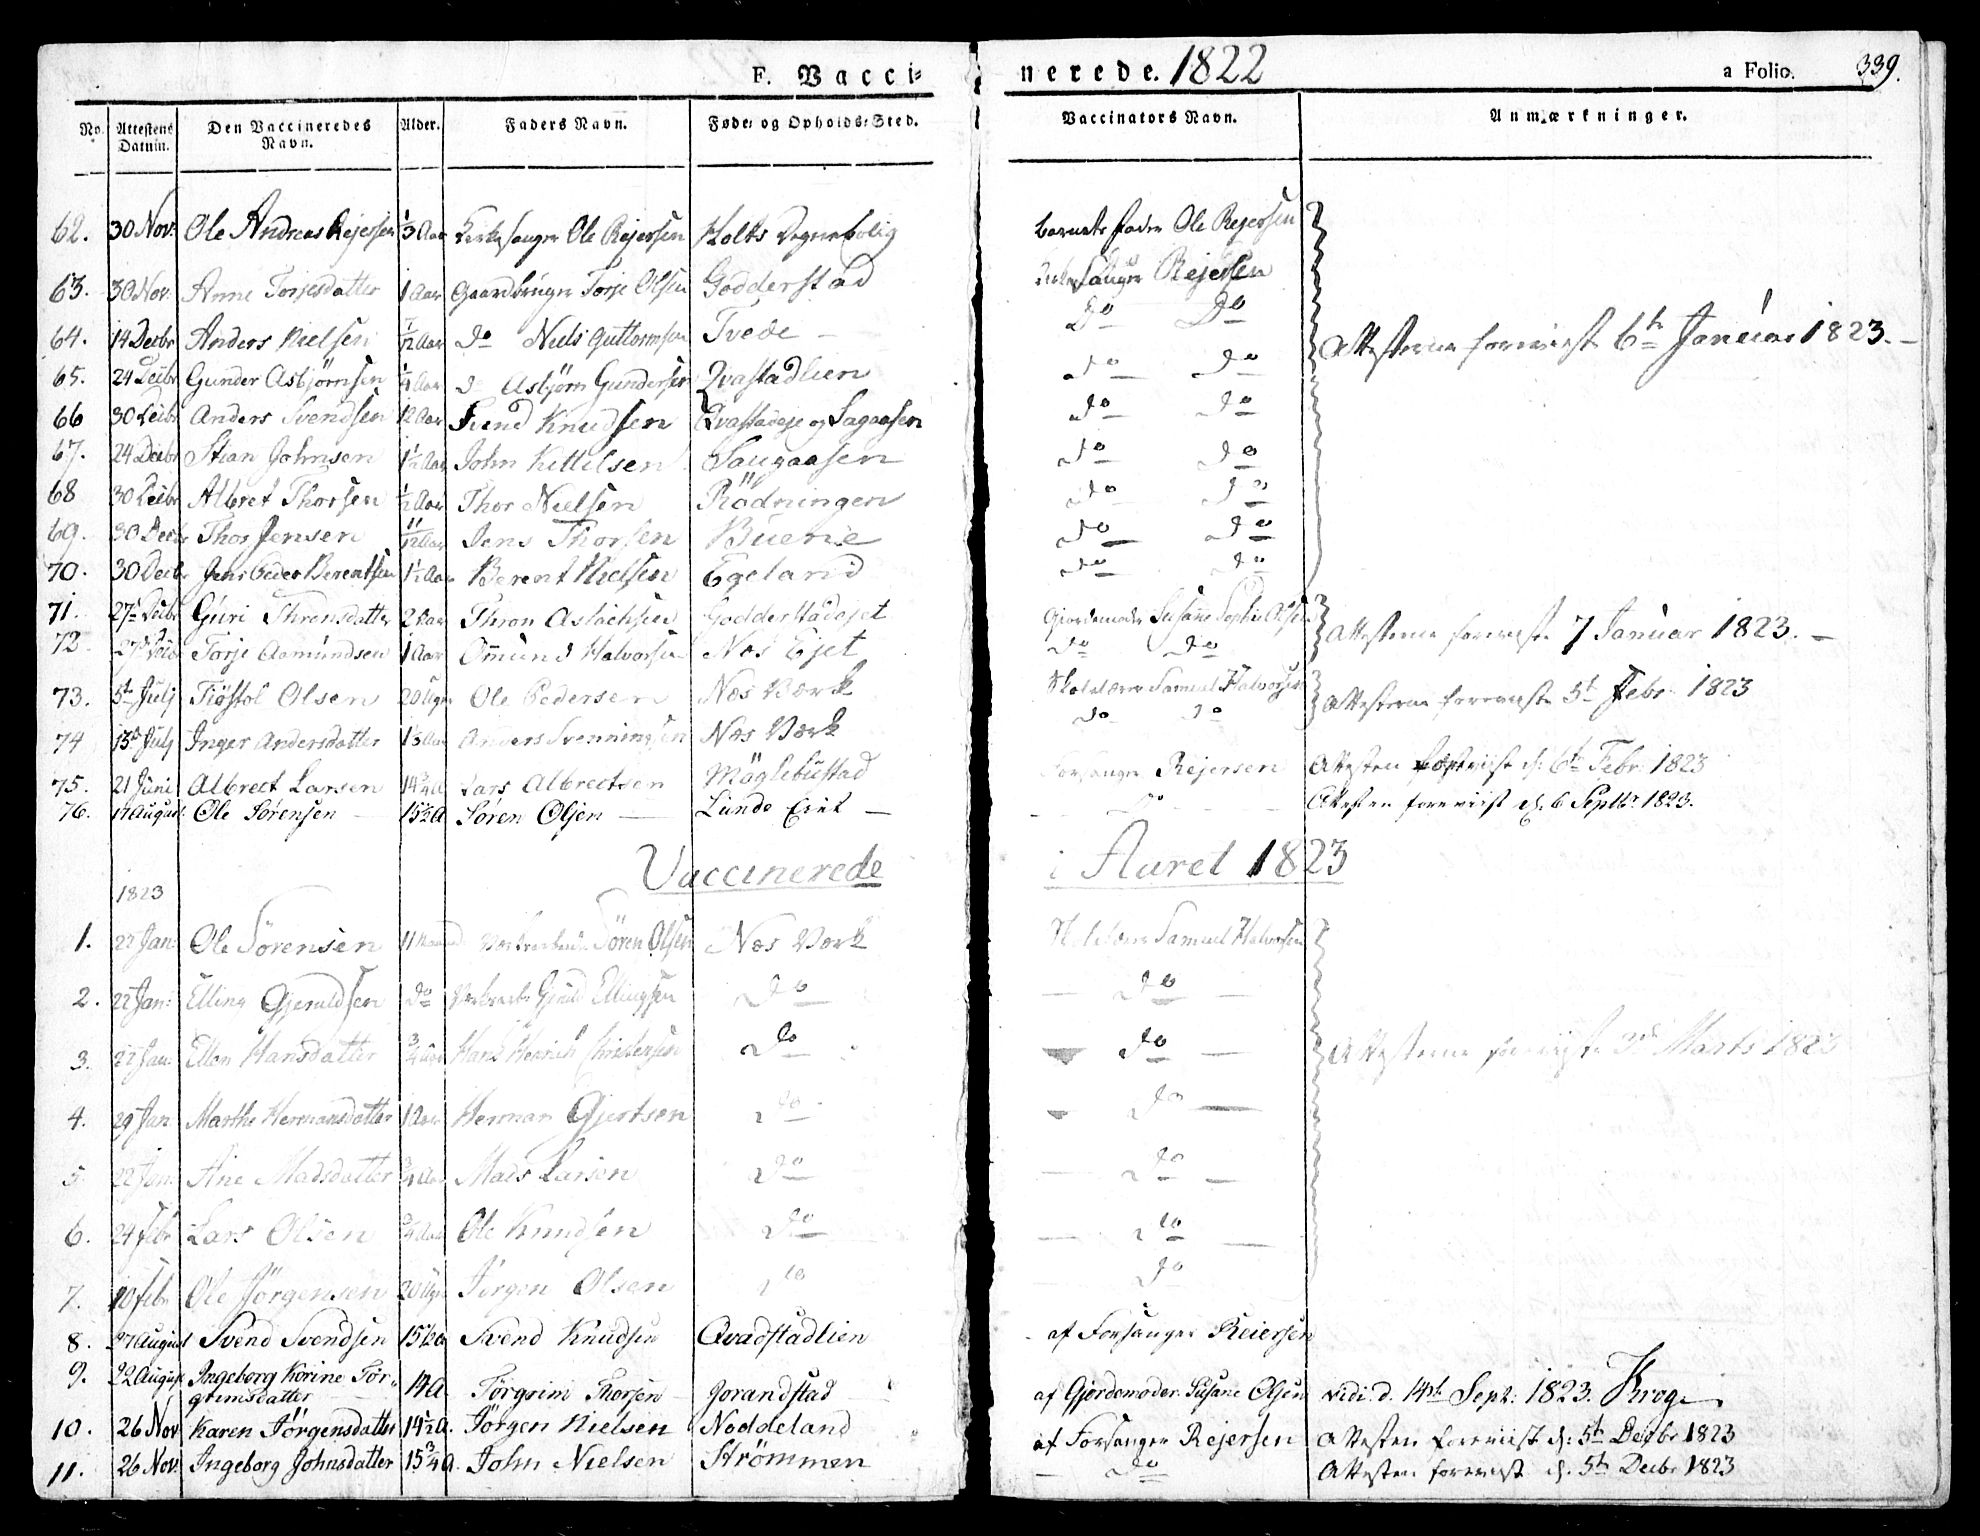 F. Vacci=nerede. 1822 a Folio. 339.
No. Attestens Datum. Den Vaccineredes Navn. Alder. Faders Navn. Føde- og Opholds-Sted. Vaccinators Navn. Anmærkninger.
62. 30 Nov: Ole Andreas Rejersen 1/3 Aar Kirkesanger Ole Rejersen Holts Degnebolig Barnets fader Ole Rejersen
63. 30 Nov: Anne Torjesdatter 1 Aar Gaardbruger Torje Olsen Godderstad Kirkesanger Rejersen
64. 14 Decbr Anders Nielsen Aar do Niels Guttormsen Tvede do do
65. 24 Decbr Gunder Asbjörnsen Aar do Asbjörn Gundersen Qvastadlien do do
Attesterne foreviist 6te Januar 1823.
66 30 Decbr Anders Svendsen 12 Aar Svend Knudsen Qvastadeje og Sagaasen do do
67. 24 Decbr Stian Johnsen 1½ Aar John Kittilsen Saugaasen do do
68 30 Decbr Albret Thorsen ½ Aar Thor Nielsen Rödningen do do
69. 30 Decbr Thor Jensen 11/12 Aar Jens Thorsen Buene do do
70. 30 Decbr Jens Peder Berentsen 1½ Aar Berent Nielsen Egeland do do
71. 27 Decbr Guri Thronsdatter 2 Aar Thron Aslachsen Godderstadejet Gjordemoder Susane Sophie Olsen
Attesterne foreviist 7 Januar 1823.
72 27 Decbr Torje Aamundsen 1 Aar Omund Halvorsen Næs Ejet do do
73. 5te Julj Tiöstol Olsen 20 Uger Ole Pedersen Næs Værk Skolelærer Samuel Halvorsen Attesterne foreviist 5te Febr. 1823
74 13de Julj Inger Andersdatter Aar Anders Svenningsen Næs Værk do do
75. 21 Juni Albrect Larsen 14¾ A Lars Albrectsen Möglebustad Forsanger Rejersen Attesten foreviist d. 6te Febr. 1823
76. 17 August Ole Sørensen 15½ A Søren Olsen Lunde Eiet do Attesten foreviist d. 6 Septbr 1823.
Vaccinerede i Aaret 1823
1823
1. 22 Jan: Ole Sörensen 11 Maaned Sören Olsen Næs Værk Skolelærer Samuel Halvorsen
2. 22 Jan: Elling Gjeruldsen do Ellingsen do do
3. 22 Jan: Ellen Hansdatter ¾ Hans Henrich Christensen do do Attesterne foreviist 3de Marts 1823
4. 29 Jan Marthe Hermansdatter 1 Aar Herman Gjertsen do do
5. 22 Jan: Ane Madsdatter ¾ Aar Mads Larsen do do
6. 24 Febr Lars Olsen ¾ Aar Ole Knudsen do do
7. 10 Febr Ole Jörgensen 20 Uger Jörgen Olsen do do
8. 27 August Svend Svendsen 15½ A Svend Knudsen Qvadstadlien af Forsanger Reiersen
9. 22 August Ingeborg Karine Tor-
grimsdatter 14 A Torgrim Thorsen Jorandstad af Gjordemoder Susane Olsen vidi d. 14de Sept: 1823. Krog
10. 26 Nov Karen Jörgensdatter 14½ A. Jörgen Nielsen Noddeland af Forsanger Rejersen Attesten foreviist d: 5te Decbr 1823
11. 26 Nov: Ingeborg Johnsdatter 15¾ A. John Nielsen Strömmen do Attesten foreviist d. 5te Decbr 1823